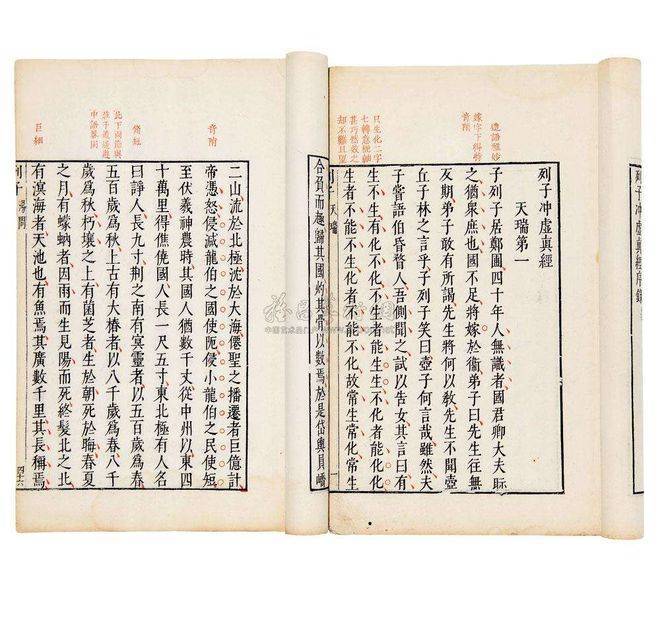 列子冲虛真經序錄
列子冲虛真經
天瑞第一
子列子居鄭圃四十年人無識者國君卿大夫眎
之猶衆庶也國不足將嫁於衞弟子曰先生往無
反期弟子敢有所謁先生將何以敎先生不聞壺
丘子林之言乎子列子笑曰壺子何言哉雖然夫
子嘗語伯昏瞀人吾側聞之試以告女其言曰有
生不生有化不化不生者能生生不化者能化化
生者不能不生化者不能不化故常生常化常生
列子 天瑞 一
嫁字下得
只生化二字
甚巧然
却不難
合負而趣歸其國灼其骨以數焉於是岱輿員嶠
二山流於北極沈於大海僊聖之播遷者巨億計
帝憑怒侵減龍伯之國使阨侵小龍伯之民使短
至伏羲神農時其國人猶數千丈從中州以東四
十萬里得僬僥國人長一尺五寸東北極有人名
曰諍人長九寸荆之南有冥靈者以五百歲爲春
五百歲爲秋上古有大椿者以八千歲爲春八千
歲爲秋朽壤之上有菌芝者生於朝死於晦春夏
之月有蠓蚋者因雨而生見陽而死終髮北之北
有溟海者天池也有魚焉其廣數千里其長稱焉
列子 湯問 四十六
巨細